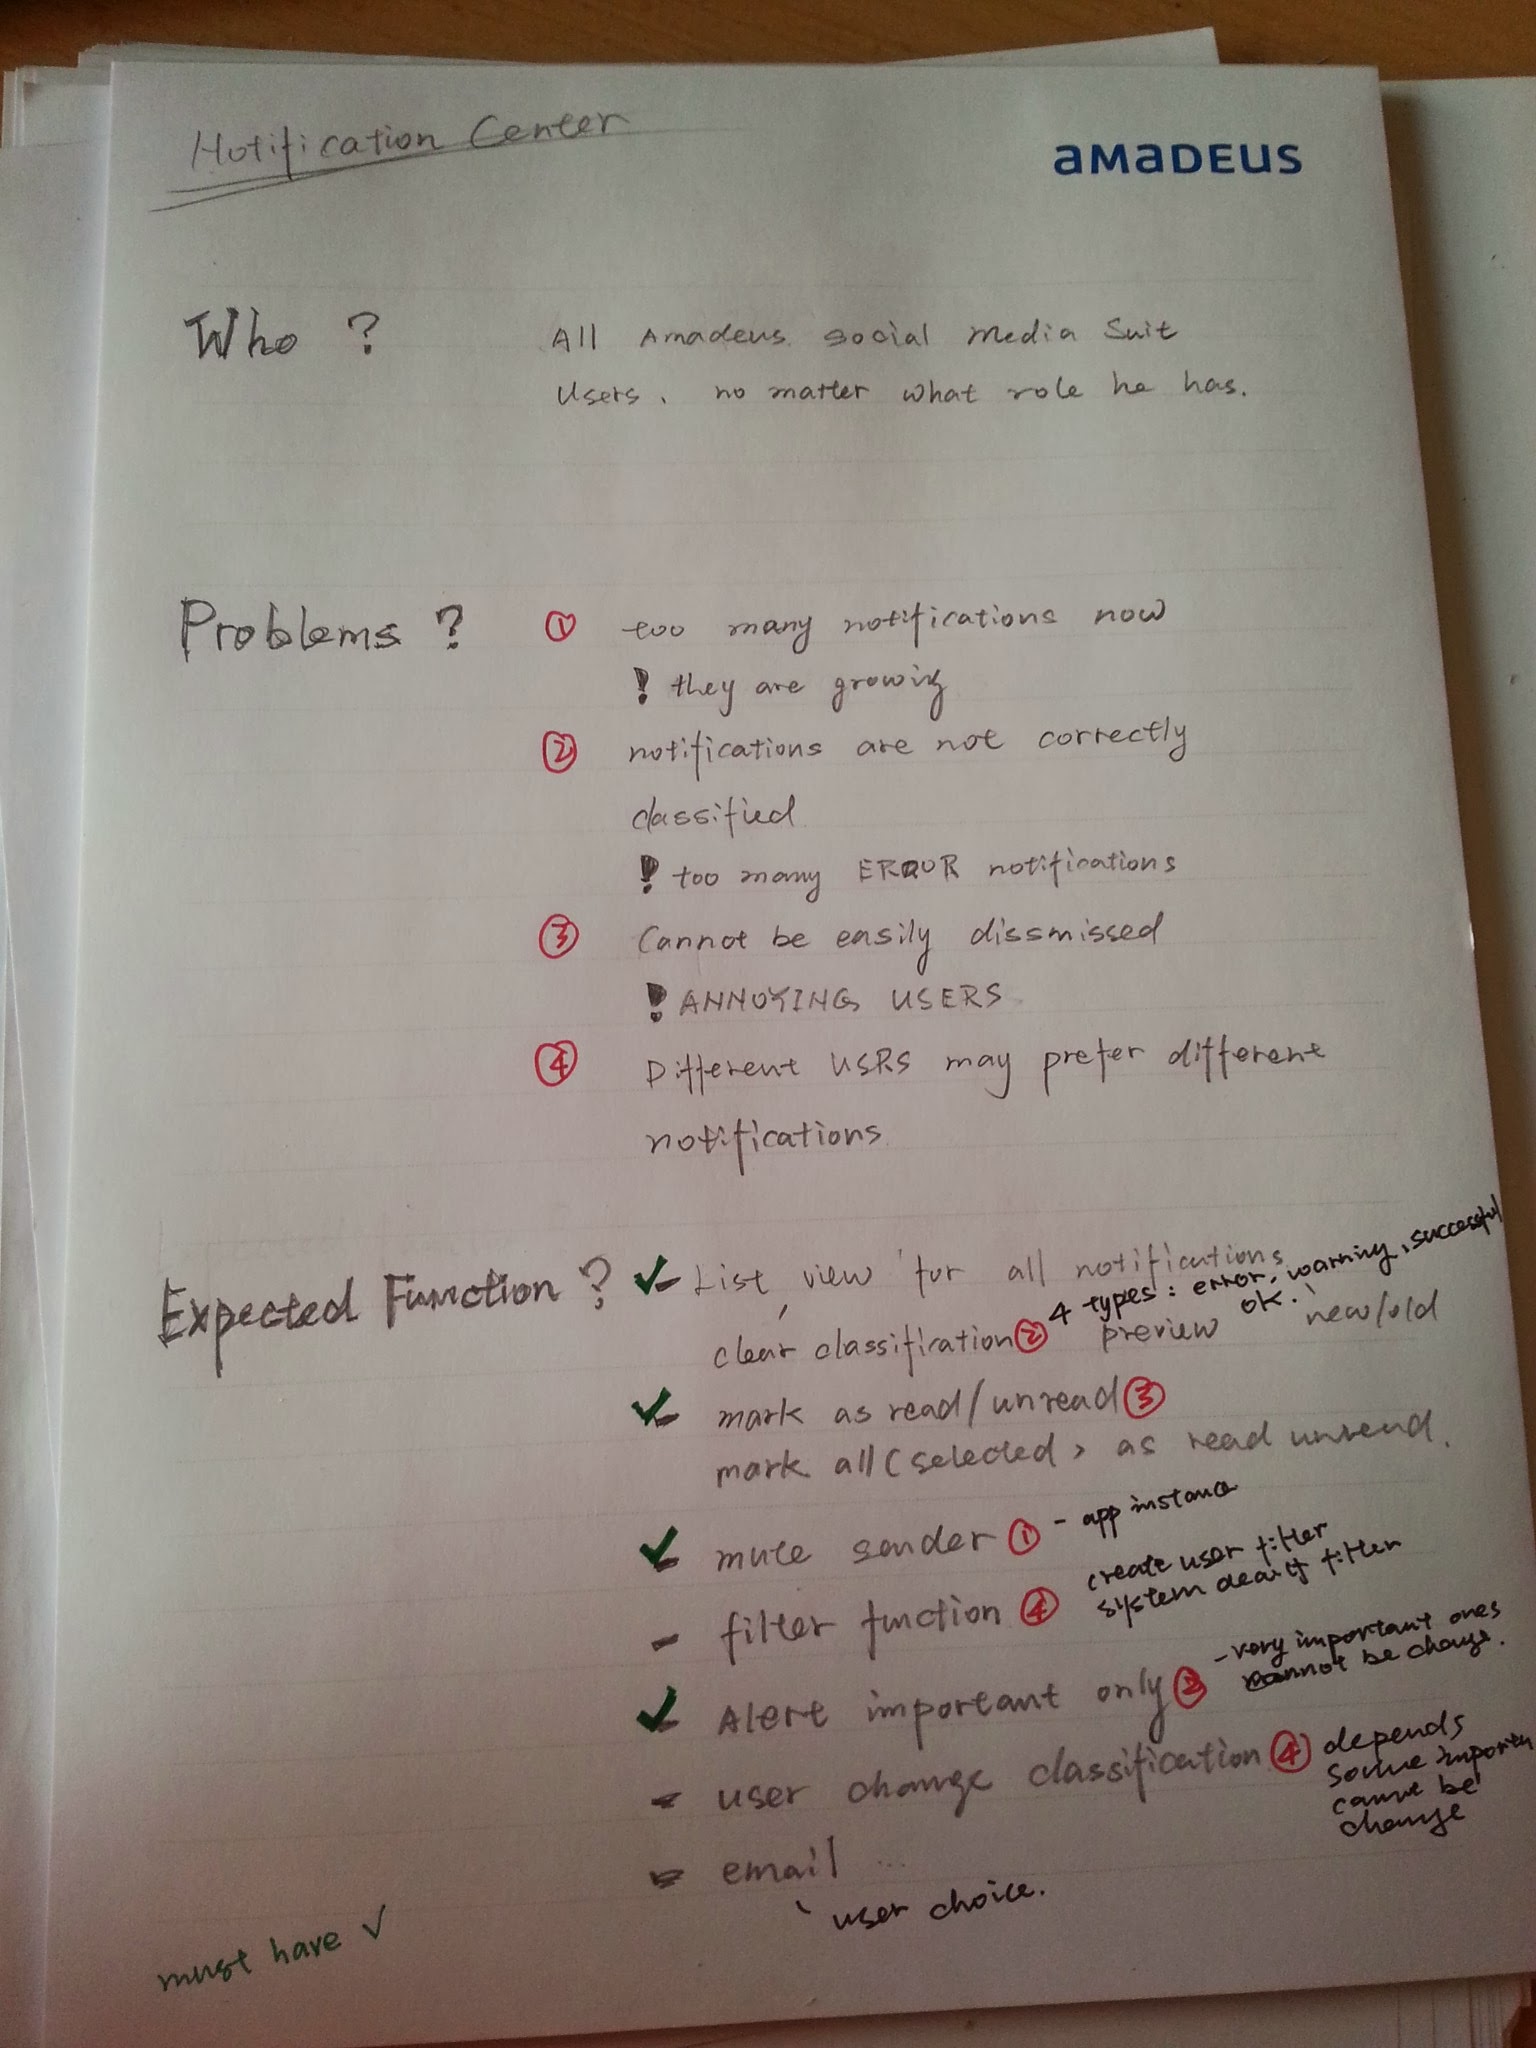 Notification Center
aMaDEUS
Who ?
All Amadeus social Media Suit
Users, no matter what role he has.
Problems ?
① too many notifications now
! they are growing
② notifications are not correctly
classified
! too many ERROR notifications
③ Cannot be easily dissmissed
! ANNOYING USERS
④ Different USRS may prefer different
notifications
Expected Function ?
✓ - List view for all notifications
4 types: error, warning, successful
ok.
clear classification ② preview new/old
✓ - mark as read/unread ③
mark all (selected) as read unread.
✓ - mute sender ① - app instance
- filter function ④ create user filter
system filter
✓ - Alert important only ② - very important ones
cannot be change.
- user change classification ④ depends
some importn
cannt be
change
- email ...
user choice.
must have ✓